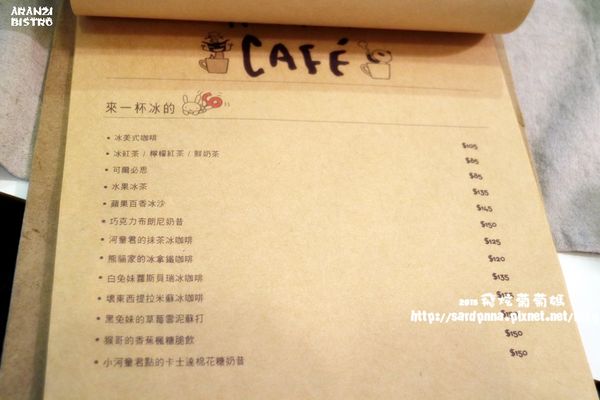 ARANZI
BISTRO
CAFÉ
來一杯冰的
• 冰美式咖啡 $105
• 冰紅茶 / 檸檬紅茶 / 鮮奶茶 $85
• 可爾必思 $85
• 水果冰茶 $135
• 蘋果百香冰沙 $145
• 巧克力布朗尼奶昔 $150
• 河童君的抹茶冰咖啡 $125
• 熊貓家的冰拿鐵咖啡 $120
• 白兔妹蘿斯貝瑞冰咖啡 $135
• 壞東西提拉米蘇冰咖啡
• 黑兔妹的草莓雲泥蘇打
• 猴哥的香蕉楓糖脆飲 $150
• 小河童君點的卡士達棉花糖奶昔 $150